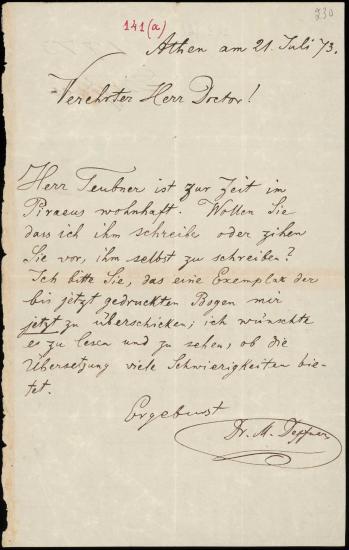 141(a)
230
Athen am 21. Juli 73.
Verehrter Herr Doctor!
Herr Teubner ist zur Zeit im
Piraeus wohnhaft. Wollen Sie
dass ich ihm schreibe oder zihen
Sie vor, ihm selbst zu schreiben?
Ich bitte Sie, das eine Exemplar der
bis jetzt gedruckten Bogen mir
jetzt zu überschicken; ich wünschte
es zu lesen und zu sehen, ob die
Übersetzung viele Schwierigkeiten bie-
tet.
Ergebenst
Dr. M. Deffner